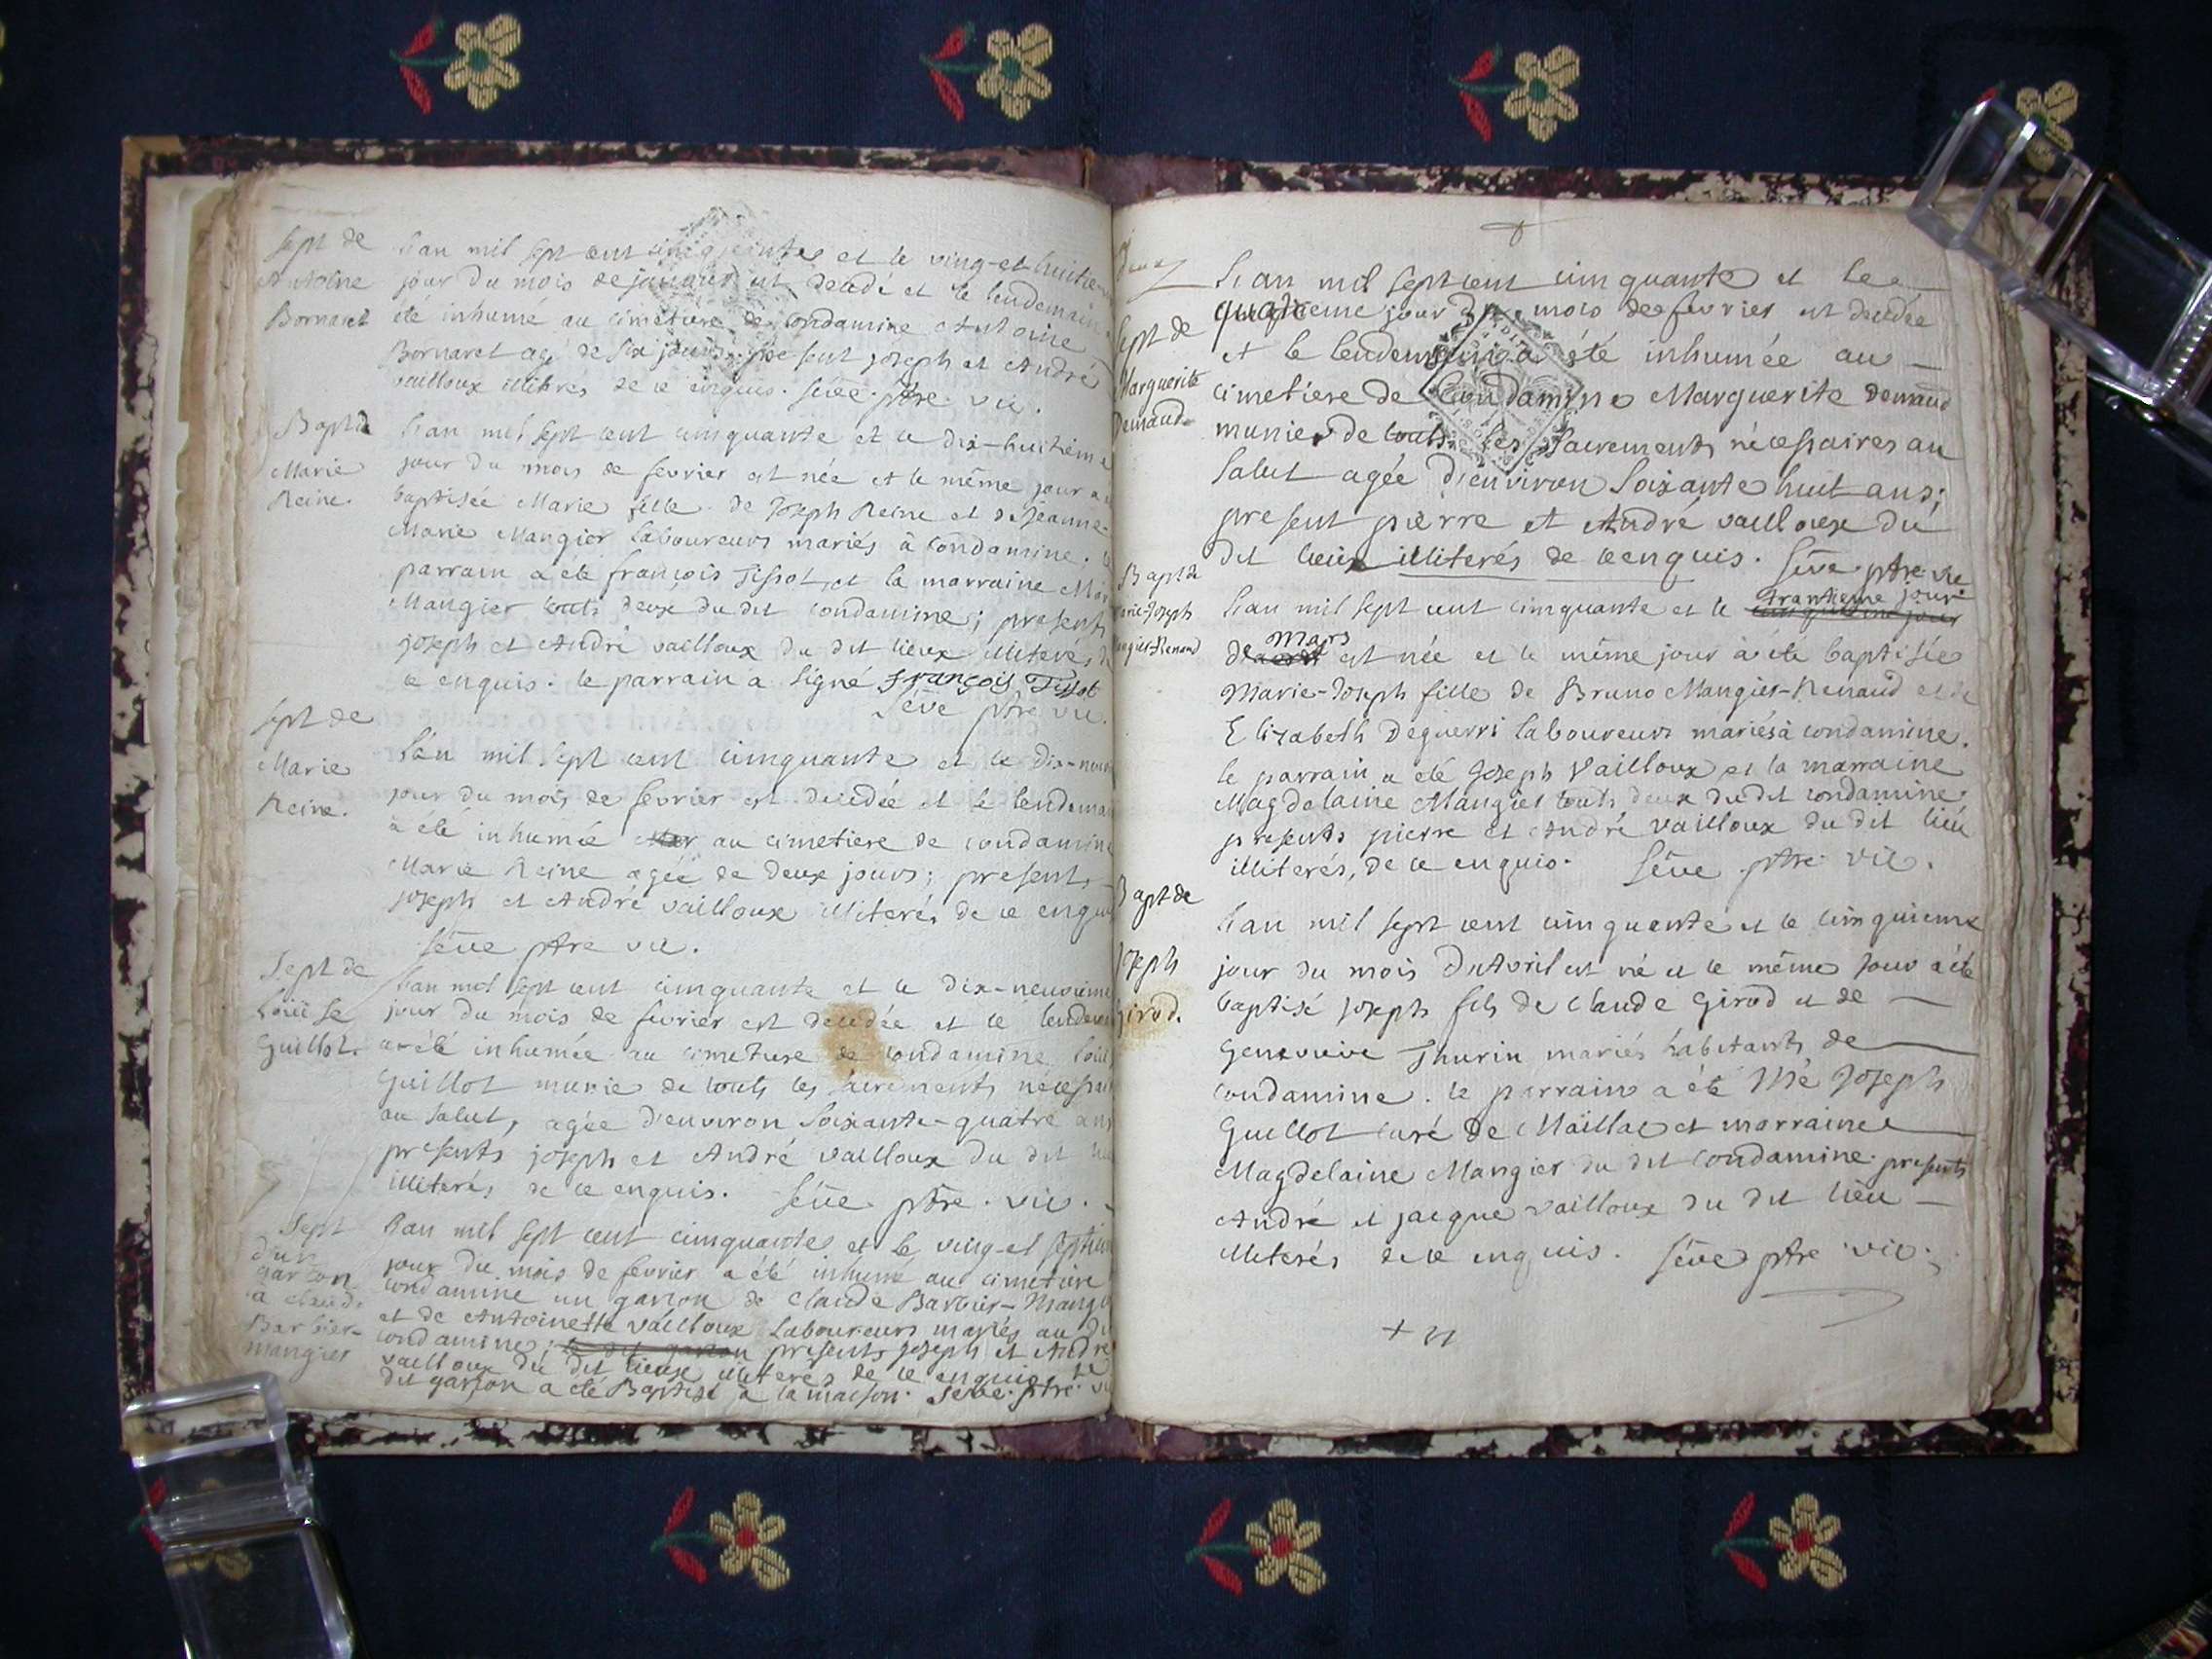 Sept de
Antoine
Bornaret
L'an mil sept cent cinquante et le ving-et-huitie
jour du mois de janvier est decedé et le lendemain
été inhumé au cimetiere de Condamine Antoine
Bornaret agé de six jours, present joseph et André
vailloux illitrés de ce enquis. Séve ptre vic.
Bapt de
Marie
Reine.
L'an mil sept cent cinquante et le dix-huitiéme
jour du mois de fevrier est née et le même jour a
baptisée Marie fille de Joseph Reine et de Jeanne-
Marie Mangier laboureurs mariés à Condamine.
parrain a été françois Tissot, et la marraine
Mangier touts deux du dit Condamine; presents
joseph et André vailloux du dit lieux illiterés de
ce enquis. le parrain a signé françois Tissot
Séve ptre vic.
Sept de
Marie
Reine.
L'an mil sept cent cinquante et le dix-neuv
jour du mois de fevrier est decedée et le lendemai
à été inhumée au cimetiere de condamine
Marie Reine agée de deux jours; presents
joseph et André vailloux illiterés de ce enquis
Séve ptre vic.
Sept de
Loüise
Guillot.
L'an mil sept cent cinquante et le dix-neuvieme
jour du mois de fevrier est decedée et le lendem
a été inhumée au cimetiere de condamine Loüi
Guillot munie de touts les sacrements necessai
au salut, agée d'environ soixante-quatre ans
presents joseph et André vailloux du dit
illiterés de ce enquis. Séve ptre. vic.
Sept
d'un
garçon
a claude
Barbier-
mangier
L'an mil sept cent cinquante et le ving-et septiem
jour du mois de fevrier a été inhumé au cimetiere
condamine un garçon de claude Barbier-Mangi
et de Antoinette vailloux laboureurs mariés au di
condamine; le dit garçon presents joseph et André
vailloux du dit lieux illiterés de ce enquis le
dit garçon a été Baptisé à la maison. Séve. ptre vi
Deux
Sept de
Marguerite
Demaud
L'an mil sept cent cinquante et le
quatrieme jour du mois de fevrier est decedée
et le lendemain a été inhumée au
cimetiere de Condamine Marguerite Demaud
munie de touts les sacrements nécessaires au
salut agée d'environ soixante huit ans;
present pierre et André vailloux du
dit lieux illiterés de ce enquis. Séve ptre vic
Bapt de
Marie-Joseph
Mangier-Renaud
L'an mil sept cent cinquante et le trantieme jour
de mars est née et le même jour à été baptisée
Marie-Joseph fille de Bruno Mangier-Renaud et de
Elizabeth Deguerri laboureurs mariés à condamine.
le parrain a été Joseph Vailloux et la marraine
Magdelaine Mangier touts deux du dit condamine.
presents pierre et André vailloux du dit lieu
illiterés, de ce enquis. Séve ptre vic.
Bapt de
Joseph
Girod.
L'an mil sept cent cinquante et le cinquieme
jour du mois d'Avril est né et le même jour a été
baptisé joseph fils de Claude Girod et de
Genevieve Thurin mariés habitants de
condamine. le parrain a été Mre Joseph
Guillot curé de Maillac et marraine
Magdelaine Mangier du dit Condamine. presents
André et jacque vailloux du dit lieu
illiterés de ce enquis. Séve ptre vic.